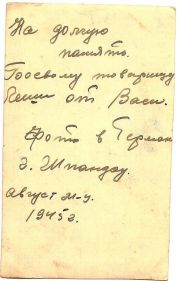 На долгую
память.
товарищу
от Васи.
Фото в Герман
г. Шпандау.
август м-ц.
1945г.